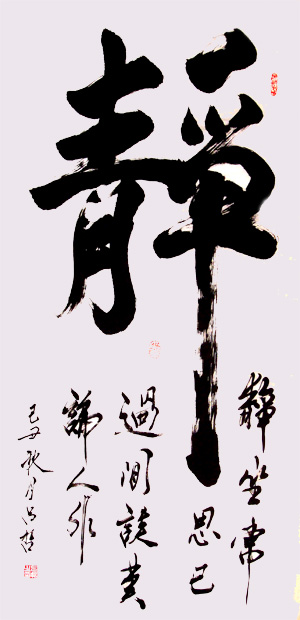 靜
靜坐常
思己
過閒談莫
論人非
己丑秋月